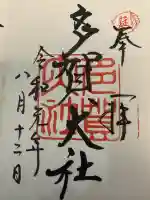 奉拝
多賀大社
令和元年
八月十二日